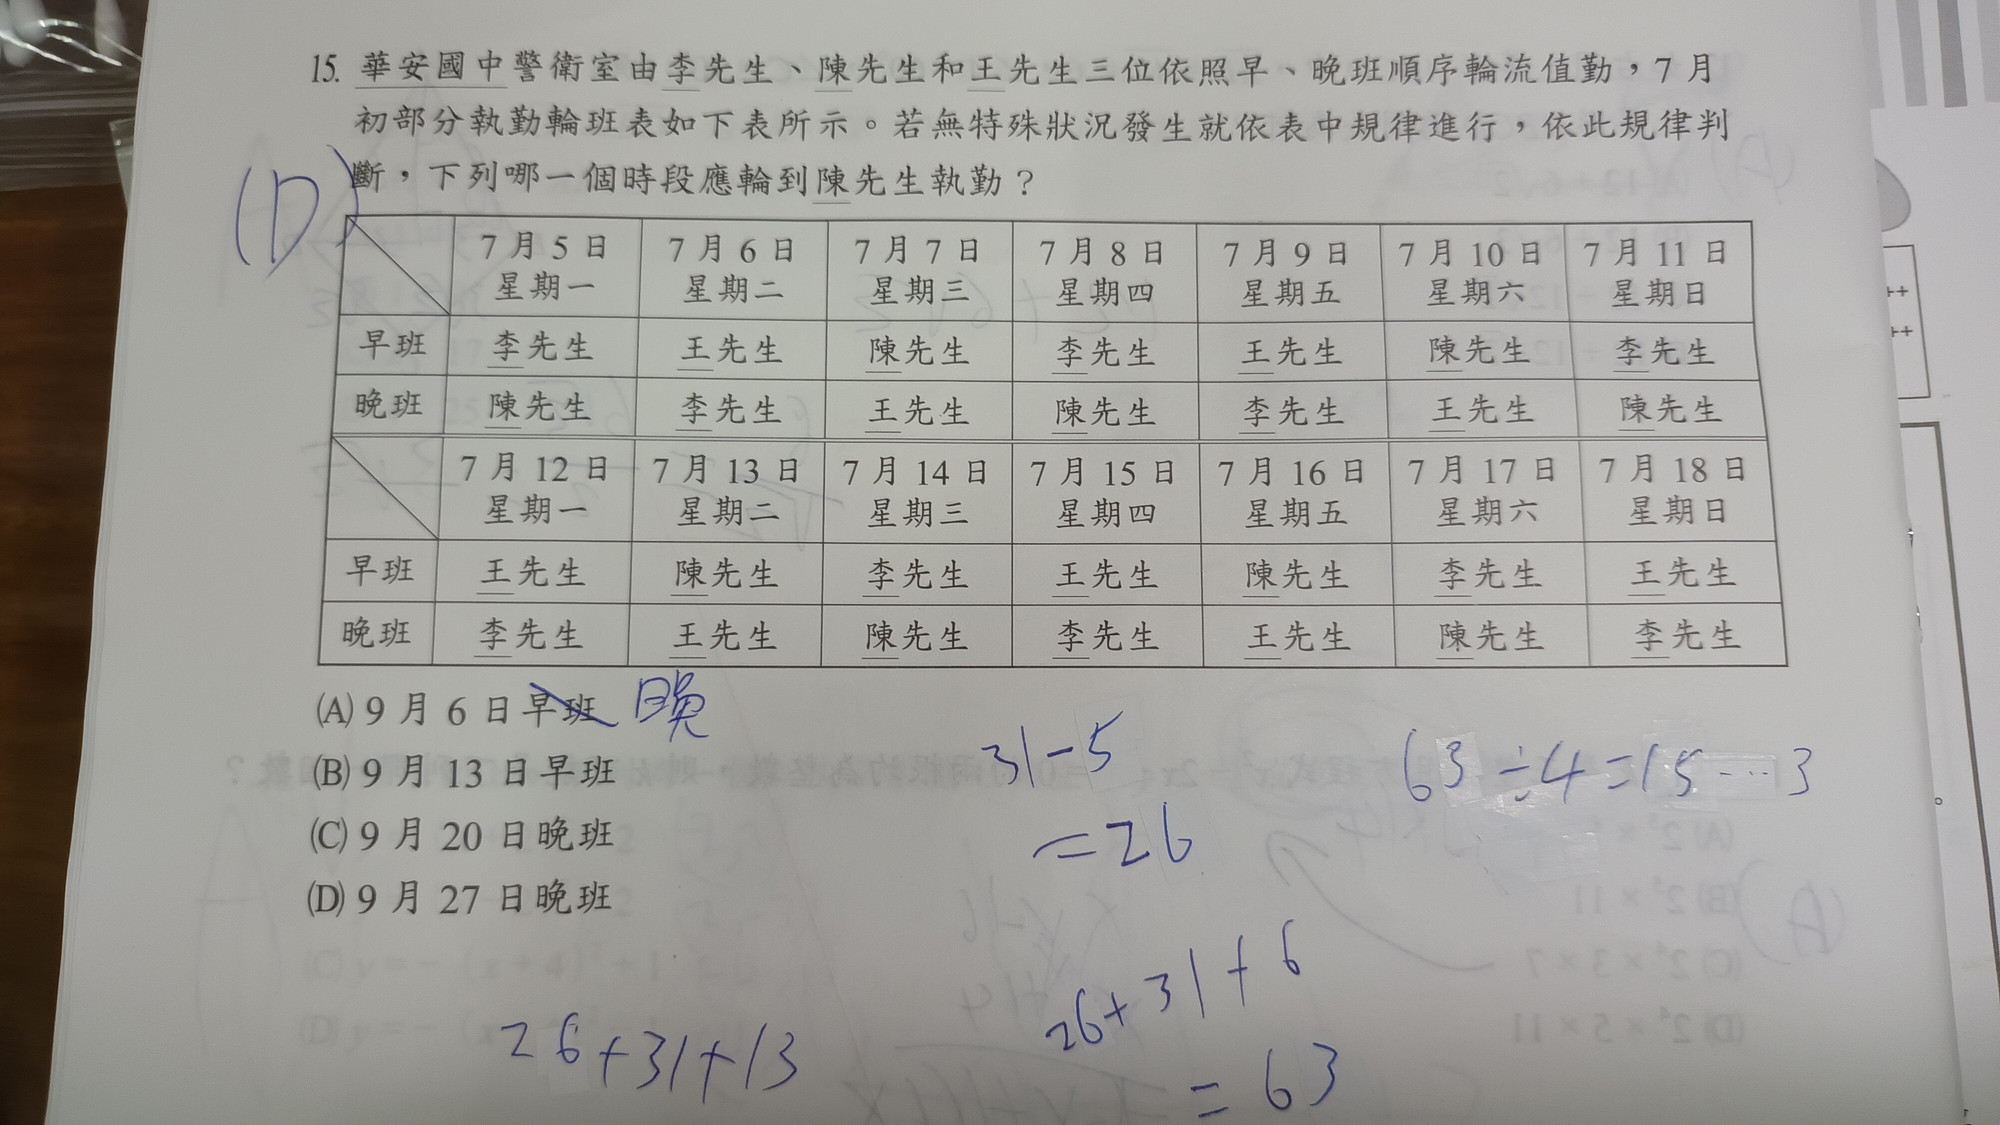 15. 華安國中警衛室由李先生、陳先生和王先生三位依照早、晚班順序輪流值勤，7 月
初部分執勤輪班表如下表所示。若無特殊狀況發生就依表中規律進行，依此規律判
(D)
斷，下列哪一個時段應輪到陳先生執勤？
7 月 5 日 7 月 6 日 7 月 7 日 7 月 8 日 7 月 9 日 7 月 10 日 7 月 11 日
星期一 星期二 星期三 星期四 星期五 星期六 星期日
早班 李先生 王先生 陳先生 李先生 王先生 陳先生 李先生
晚班 陳先生 李先生 王先生 陳先生 李先生 王先生 陳先生
7 月 12 日 7 月 13 日 7 月 14 日 7 月 15 日 7 月 16 日 7 月 17 日 7 月 18 日
星期一 星期二 星期三 星期四 星期五 星期六 星期日
早班 王先生 陳先生 李先生 王先生 陳先生 李先生 王先生
晚班 李先生 王先生 陳先生 李先生 王先生 陳先生 李先生
(A) 9 月 6 日早班
(B) 9 月 13 日早班
(C) 9 月 20 日晚班
(D) 9 月 27 日晚班
31-5
=26
63÷4=15…3
26+31+6
=63
26+31+13